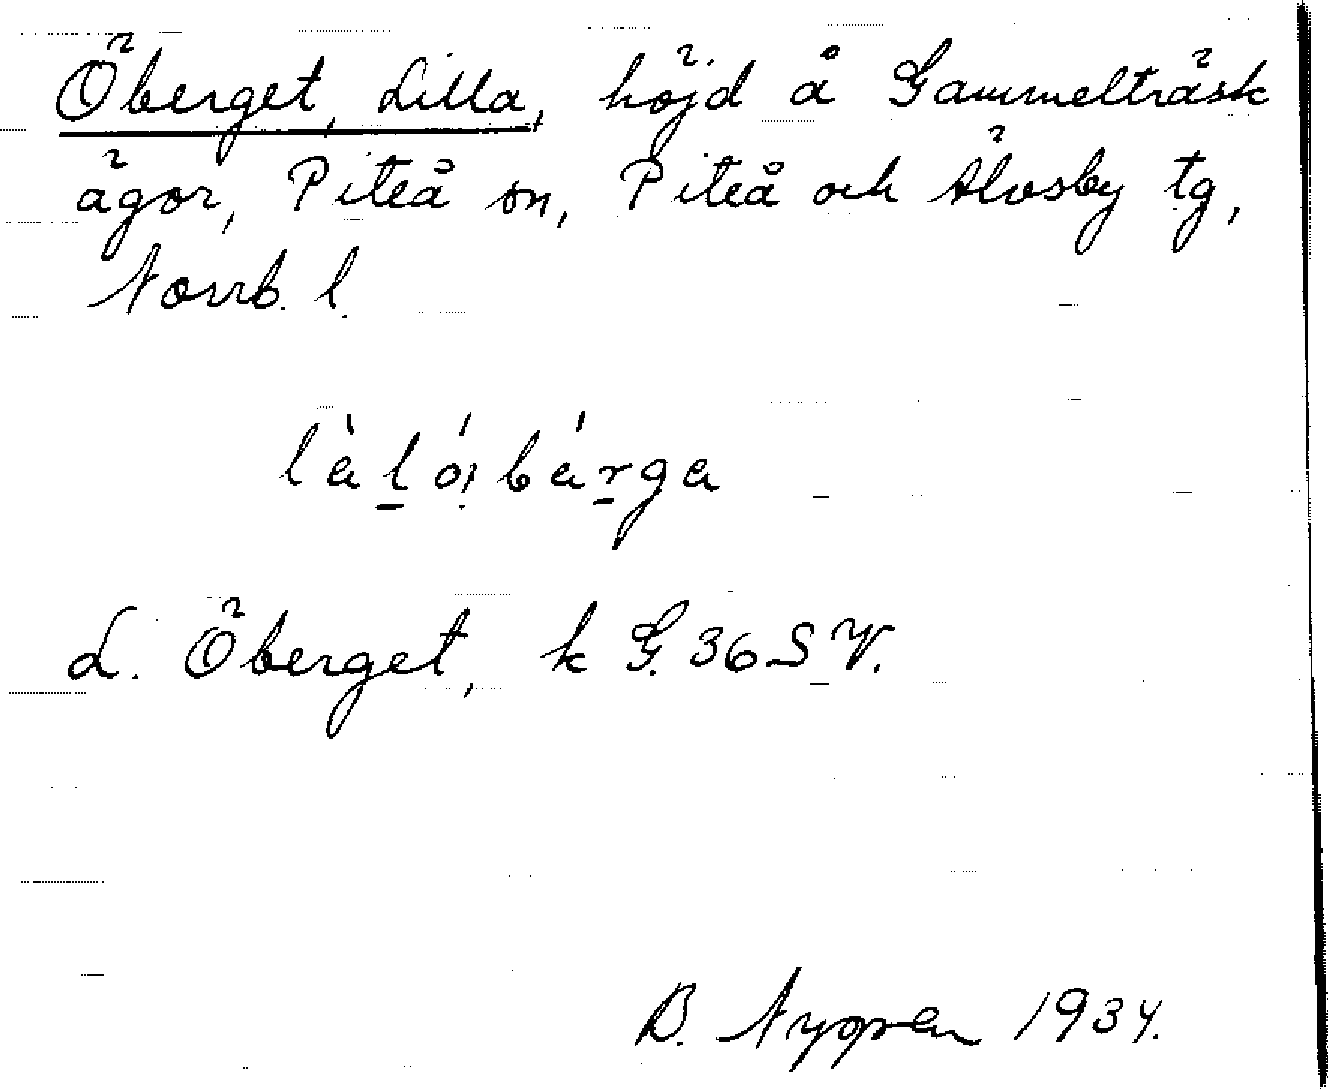 Öberget, Lilla, höjd å Gammelträsk
ägor, Piteå sn, Piteå och Älvsby tg,
Norrb. l.
làlọ́ıbárga
L. Öberget, k G. 36 SV.
B. Nygren 1934.